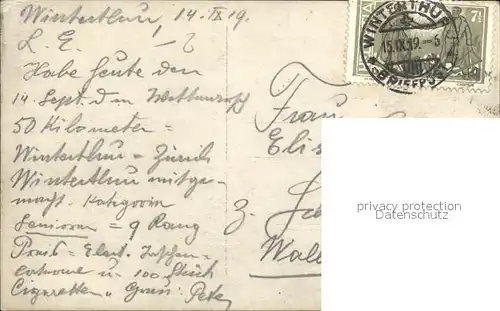 Winterthur, 14. IX 19.
L. E.
Habe heute den
14 Sept. d. m. Wettmarsch
50 Kilometer =
Winterthur - Zürich
Winterthur mitge-
macht. Kategorie
Senioren = 9 Rang
Preis = Elect. Taschen=
laterne u. 100 Stück
Cigaretten. Gruss: Peter
Frau
Elis
z.
Wall
WINTERTHUR
15.IX.19.-5
BRIEFPOST
7½
privacy protection